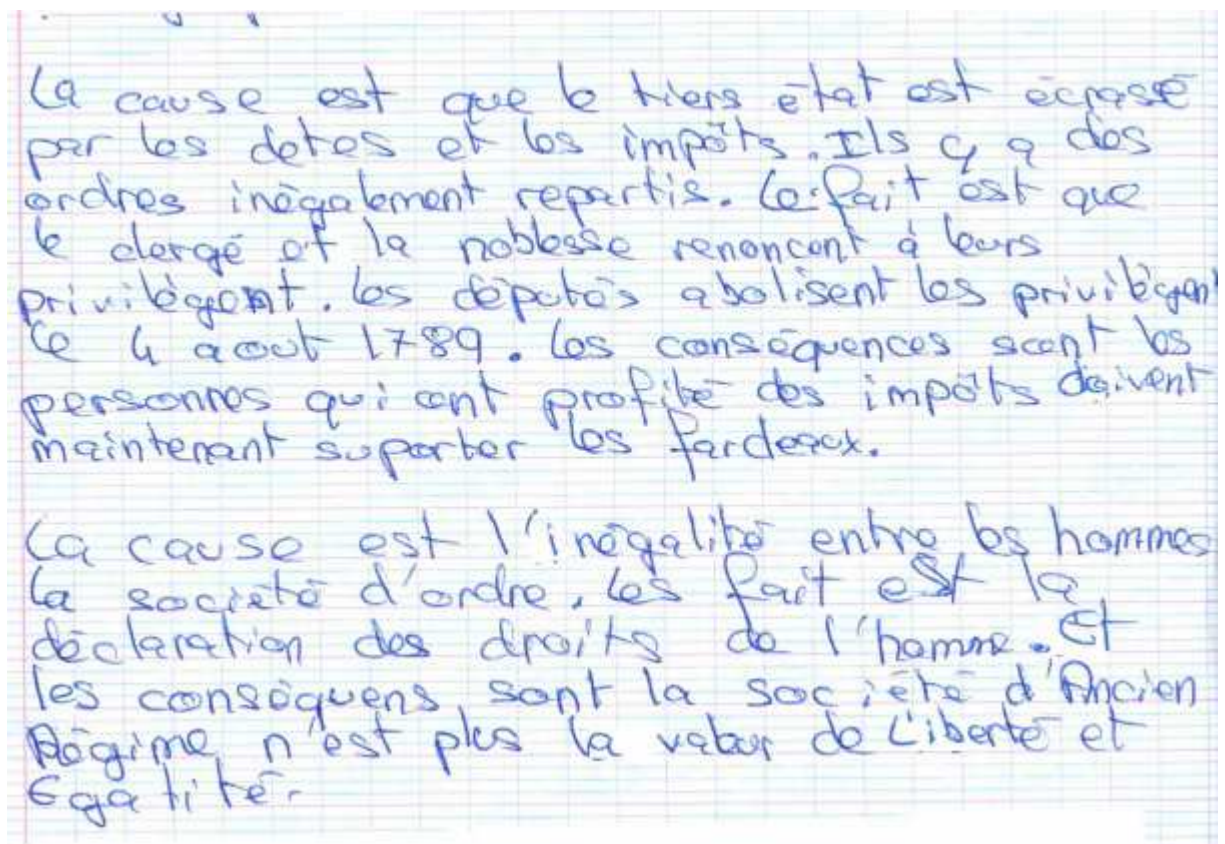 La cause est que le tiers état est écrasé
par les detes et les impôts. Ils y a des
ordres inégalement repartis. Le fait est que
le clergé et la noblesse renoncent à leurs
privilègent. Les députés abolisent les privilègent
le 4 aout 1789. Les conséquences sont les
personnes qui ont profité des impôts doivent
maintenant suporter les fardeaux.
La cause est l'inégalité entre les hommes
la société d'ordre. Les fait est la
déclaration des droits de l'homme. Et
les conséquens sont la société d'Ancien
Régime n'est plus la valeur de Liberté et
Egalité.